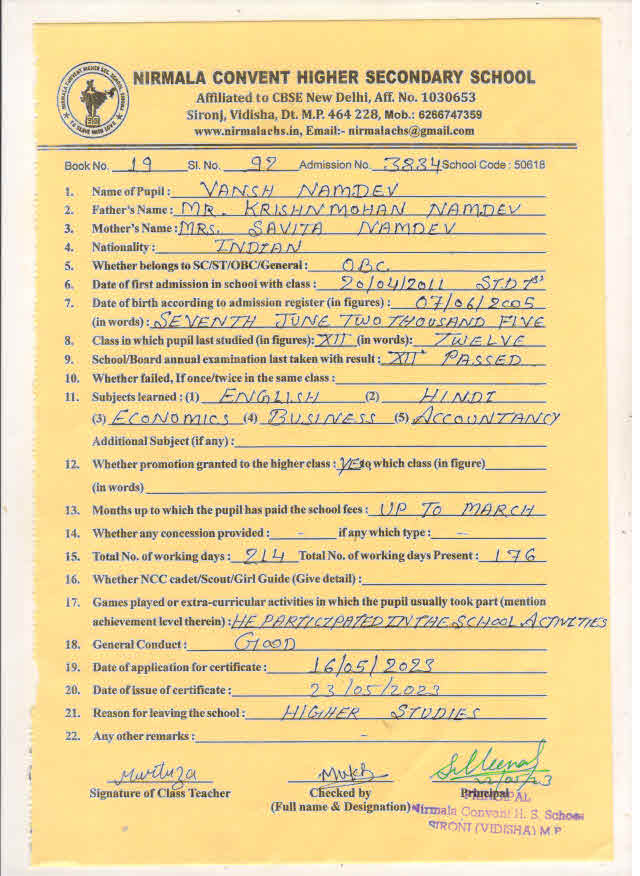 NIRMALA CONVENT HIGHER SECONDARY SCHOOL
Affiliated to CBSE New Delhi, Aff. No. 1030653
Sironj, Vidisha, Dt. M.P. 464 228, Mob.: 6266747359
www.nirmalachs.in, Email:- nirmalachs@gmail.com
Book No. 19 Sl. No. 92 Admission No. 3884 School Code : 50618
1. Name of Pupil : VANSH NAMDEV
2. Father's Name : MR. KRISHNMOHAN NAMDEV
3. Mother's Name : MRS. SAVITA NAMDEV
4. Nationality : INDIAN
5. Whether belongs to SC/ST/OBC/General : OBC
6. Date of first admission in school with class : 20/04/2011 STD Ist
7. Date of birth according to admission register (in figures) : 07/06/2005
(in words) : SEVENTH JUNE TWO THOUSAND FIVE
8. Class in which pupil last studied (in figures): XII (in words): TWELVE
9. School/Board annual examination last taken with result : XIIth PASSED
10. Whether failed, If once/twice in the same class :
11. Subjects learned : (1) ENGLISH (2) HINDI
(3) ECONOMICS (4) BUSINESS (5) ACCOUNTANCY
Additional Subject (if any) :
12. Whether promotion granted to the higher class : YES to which class (in figure)
(in words)
13. Months up to which the pupil has paid the school fees : UP TO MARCH
14. Whether any concession provided : - if any which type : -
15. Total No. of working days : 214 Total No. of working days Present : 176
16. Whether NCC cadet/Scout/Girl Guide (Give detail) :
17. Games played or extra-curricular activities in which the pupil usually took part (mention
achievement level therein) : HE PARTICIPATED IN THE SCHOOL ACTIVITIES
18. General Conduct : GOOD
19. Date of application for certificate : 16/05/2023
20. Date of issue of certificate : 23/05/2023
21. Reason for leaving the school : HIGHER STUDIES
22. Any other remarks : -
Murtuza
Signature of Class Teacher Checked by Principal
(Full name & Designation)
PRINCIPAL
Nirmala Convent H. S. School
SIRONJ (VIDISHA) M.P.